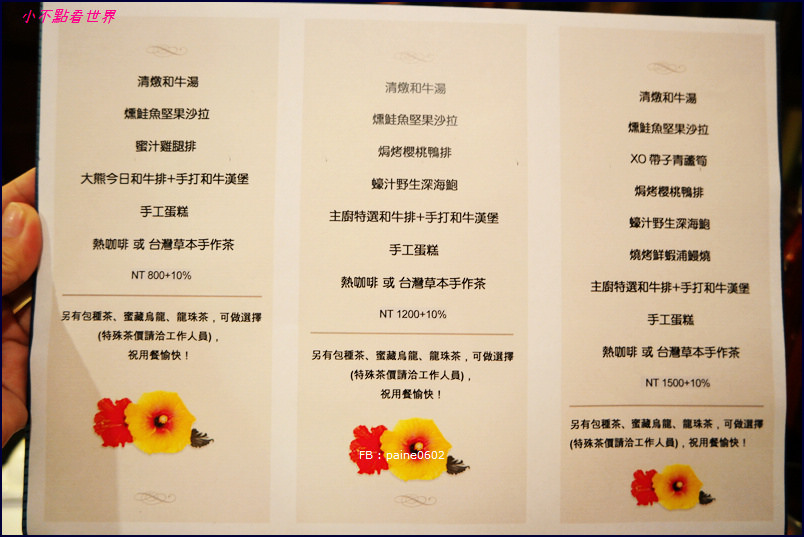 小不點看世界
清燉和牛湯
燻鮭魚堅果沙拉
蜜汁雞腿排
大熊今日和牛排+手打和牛漢堡
手工蛋糕
熱咖啡 或 台灣草本手作茶
NT 800+10%
另有包種茶、蜜藏烏龍、龍珠茶，可做選擇
(特殊茶價請洽工作人員)，
祝用餐愉快！
清燉和牛湯
燻鮭魚堅果沙拉
焗烤櫻桃鴨排
蠔汁野生深海鮑
主廚特選和牛排+手打和牛漢堡
手工蛋糕
熱咖啡 或 台灣草本手作茶
NT 1200+10%
另有包種茶、蜜藏烏龍、龍珠茶，可做選擇
(特殊茶價請洽工作人員)，
祝用餐愉快！
FB：paine0602
清燉和牛湯
燻鮭魚堅果沙拉
XO 帶子青蘆筍
焗烤櫻桃鴨排
蠔汁野生深海鮑
燒烤鮮蝦浦鰻燒
主廚特選和牛排+手打和牛漢堡
手工蛋糕
熱咖啡 或 台灣草本手作茶
NT 1500+10%
另有包種茶、蜜藏烏龍、龍珠茶，可做選擇
(特殊茶價請洽工作人員)，祝用餐愉快！